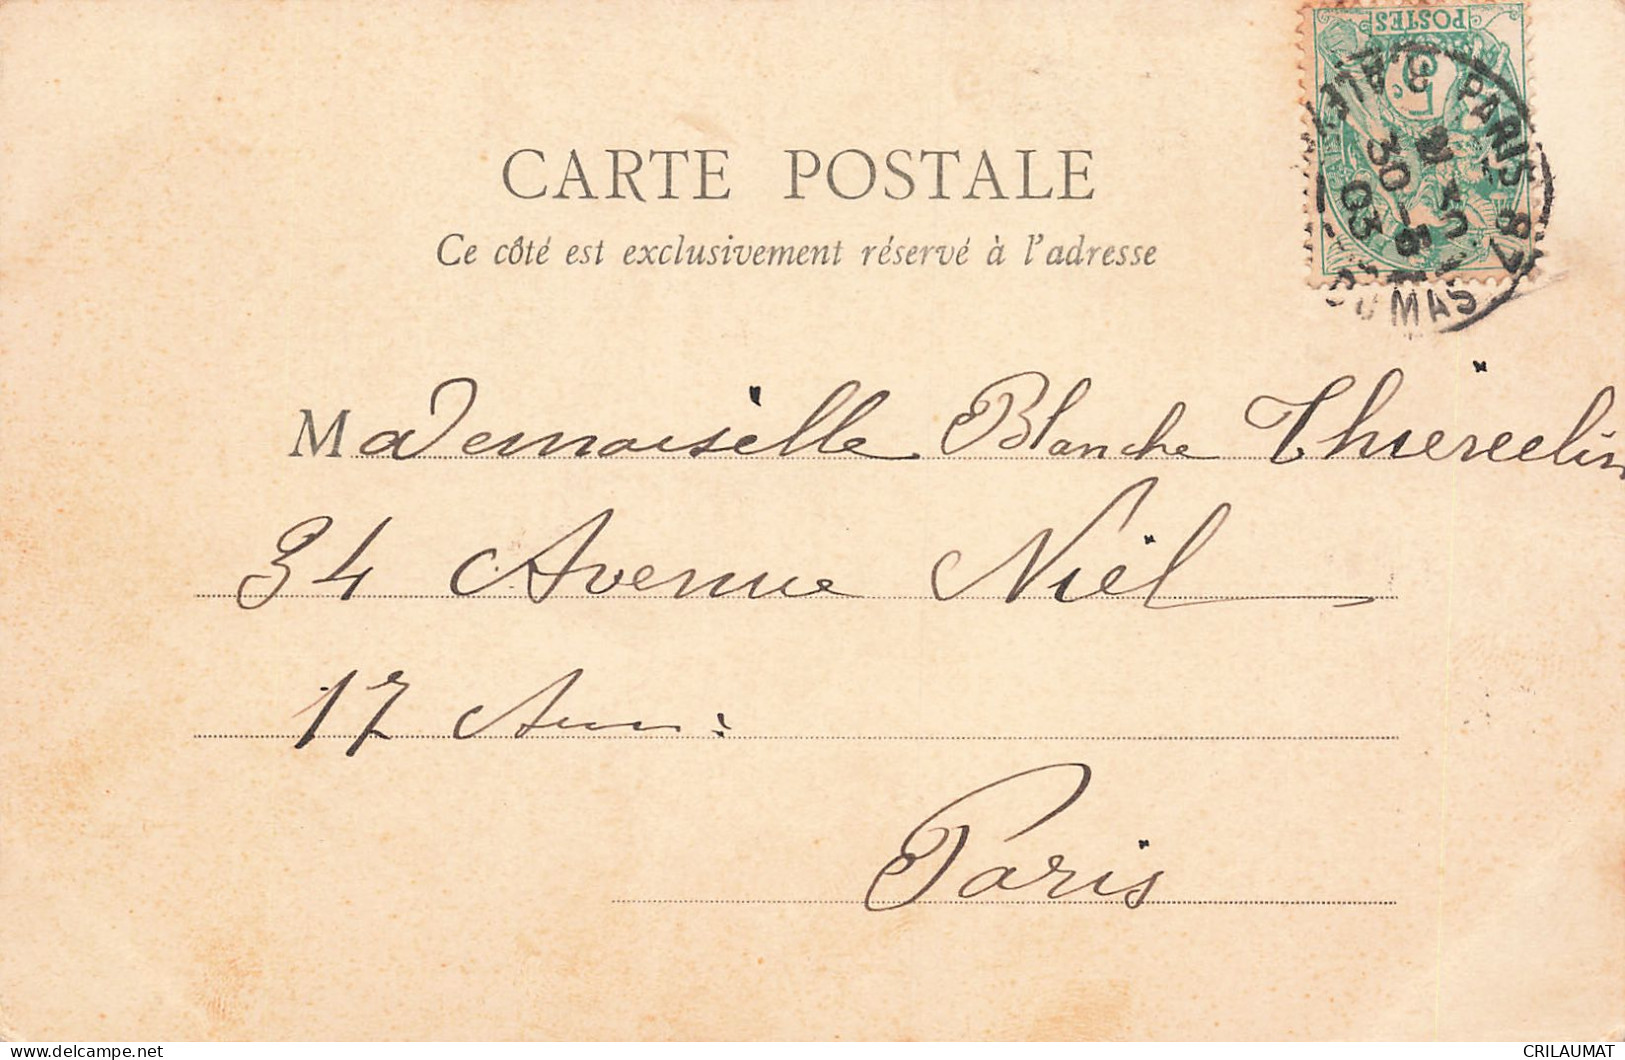 POSTES
5c
PARIS 87
R. ALEX DUMAS
30 - 5
03
CARTE POSTALE
Ce côté est exclusivement réservé à l'adresse
Mademoiselle Blanche Thiercelin
34 Avenue Niel
17 Arr:
Paris
CRILAUMAT